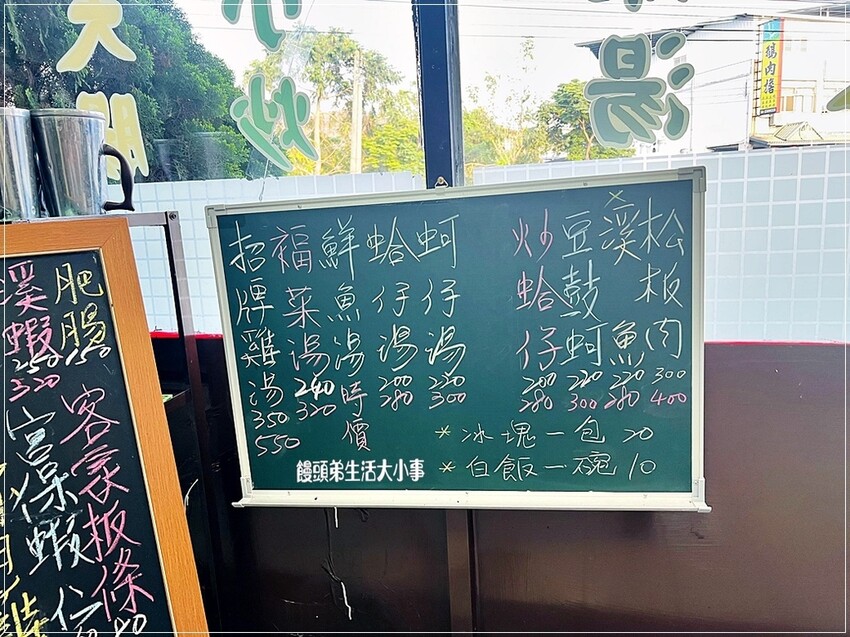 招牌雞湯 350 550
福菜湯 240 320
鮮魚湯 時價
蛤仔湯 200 280
蚵仔湯 220 300
炒蛤仔 200 280
豆鼓蚵 220 300
溪魚 220 280
松板肉 300 400
*冰塊一包 20
*白飯一碗 10
饅頭弟生活大小事
溪蝦 250 320
肥腸 150
客家板條
宮保蝦仁
小炒
湯
大腸
鵝肉擔